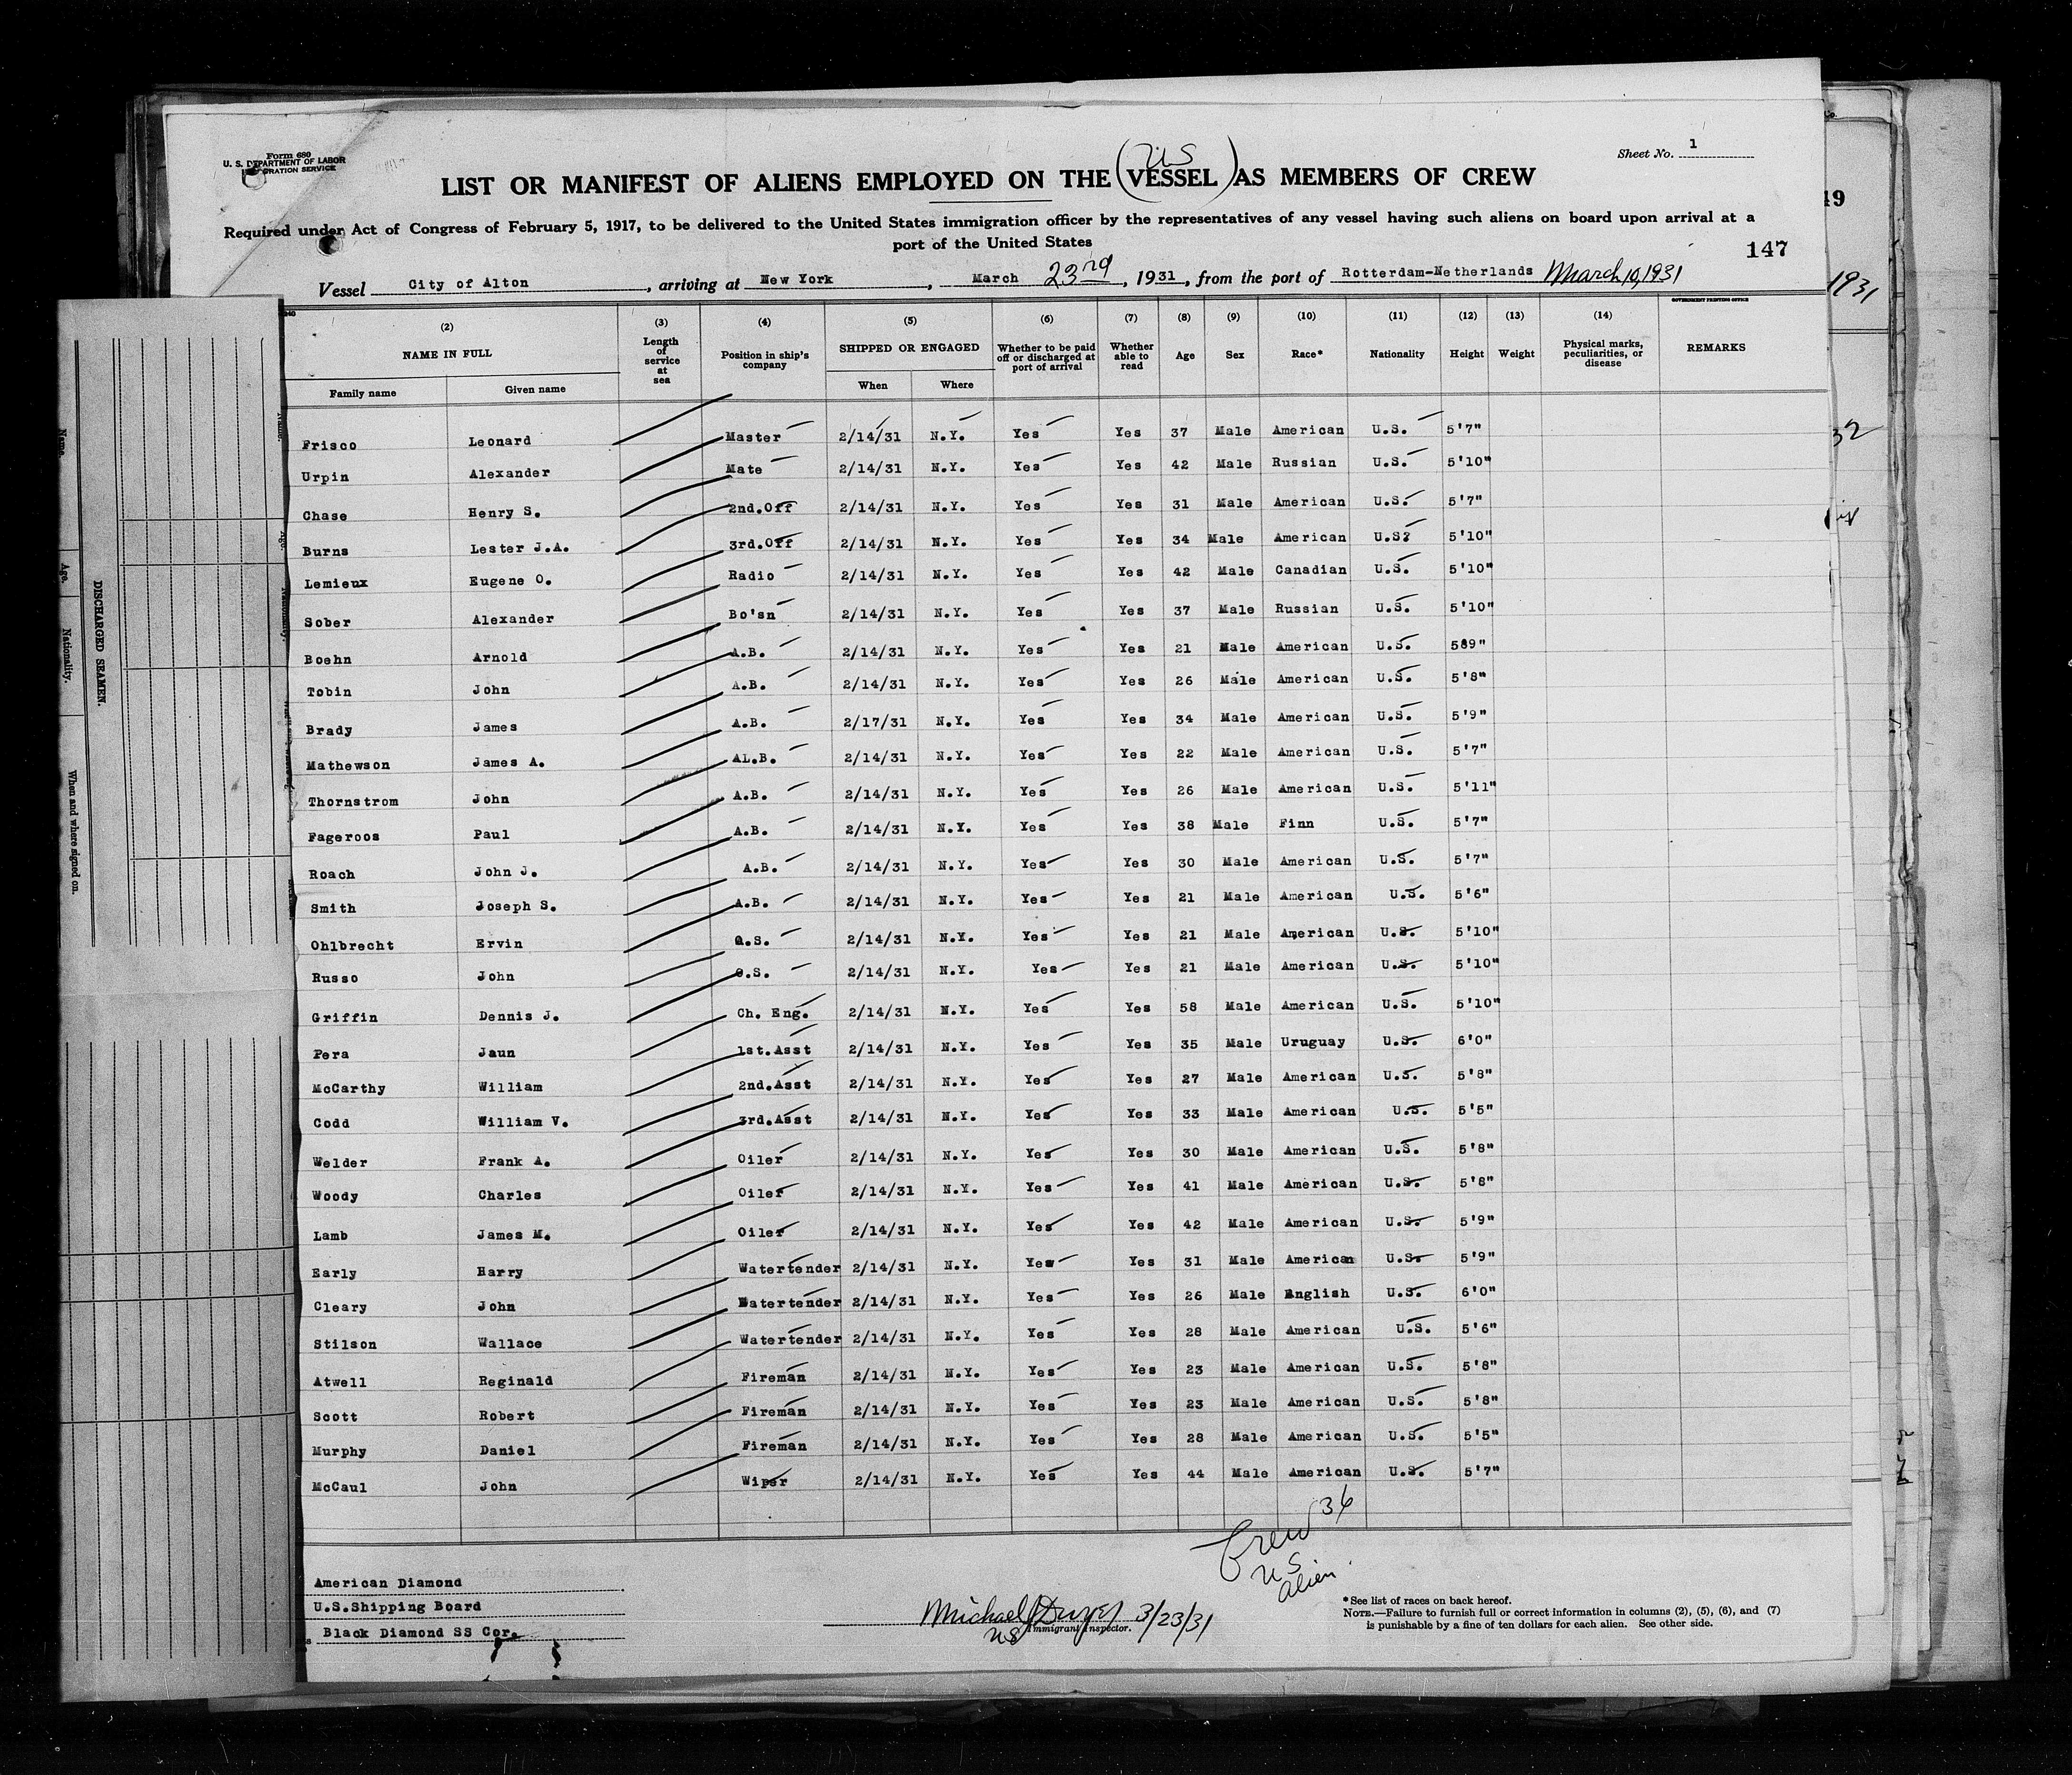 Form 680
U. S. DEPARTMENT OF LABOR
GRATION SERVICE
Sheet No. 1
US
LIST OR MANIFEST OF ALIENS EMPLOYED ON THE (VESSEL) AS MEMBERS OF CREW
Required under Act of Congress of February 5, 1917, to be delivered to the United States immigration officer by the representatives of any vessel having such aliens on board upon arrival at a
port of the United States
147
Vessel City of Alton, arriving at New York, March 23rd, 1931, from the port of Rotterdam-Netherlands March 10, 1931
GOVERNMENT PRINTING OFFICE
(2) (3) (4) (5) (6) (7) (8) (9) (10) (11) (12) (13) (14)
NAME IN FULL Length of service at sea Position in ship's company SHIPPED OR ENGAGED Whether to be paid off or discharged at port of arrival Whether able to read Age Sex Race* Nationality Height Weight Physical marks, peculiarities, or disease REMARKS
Family name Given name When Where
Frisco Leonard Master 2/14/31 N.Y. Yes Yes 37 Male American U.S. 5'7"
Urpin Alexander Mate 2/14/31 N.Y. Yes Yes 42 Male Russian U.S. 5'10"
Chase Henry S. 2nd.Off 2/14/31 N.Y. Yes Yes 31 Male American U.S. 5'7"
Burns Lester J.A. 3rd.Off 2/14/31 N.Y. Yes Yes 34 Male American U.S? 5'10"
Lemieux Eugene O. Radio 2/14/31 N.Y. Yes Yes 42 Male Canadian U.S. 5'10"
Sober Alexander Bo'sn 2/14/31 N.Y. Yes Yes 37 Male Russian U.S. 5'10"
Boehn Arnold A.B. 2/14/31 N.Y. Yes Yes 21 Male American U.S. 589"
Tobin John A.B. 2/14/31 N.Y. Yes Yes 26 Male American U.S. 5'8"
Brady James A.B. 2/17/31 N.Y. Yes Yes 34 Male American U.S. 5'9"
Mathewson James A. AL.B. 2/14/31 N.Y. Yes Yes 22 Male American U.S. 5'7"
Thornstrom John A.B. 2/14/31 N.Y. Yes Yes 26 Male American U.S. 5'11"
Fageroos Paul A.B. 2/14/31 N.Y. Yes Yes 38 Male Finn U.S. 5'7"
Roach John J. A.B. 2/14/31 N.Y. Yes Yes 30 Male American U.S. 5'7"
Smith Joseph S. A.B. 2/14/31 N.Y. Yes Yes 21 Male American U.S. 5'6"
Ohlbrecht Ervin O.S. 2/14/31 N.Y. Yes Yes 21 Male American U.S. 5'10"
Russo John O.S. 2/14/31 N.Y. Yes Yes 21 Male American U.S. 5'10"
Griffin Dennis J. Ch. Eng. 2/14/31 N.Y. Yes Yes 58 Male American U.S. 5'10"
Pera Jaun 1st.Asst 2/14/31 N.Y. Yes Yes 35 Male Uruguay U.S. 6'0"
McCarthy William 2nd.Asst 2/14/31 N.Y. Yes Yes 27 Male American U.S. 5'8"
Codd William V. 3rd.Asst 2/14/31 N.Y. Yes Yes 33 Male American U.S. 5'5"
Welder Frank A. Oiler 2/14/31 N.Y. Yes Yes 30 Male American U.S. 5'8"
Woody Charles Oiler 2/14/31 N.Y. Yes Yes 41 Male American U.S. 5'8"
Lamb James M. Oiler 2/14/31 N.Y. Yes Yes 42 Male American U.S. 5'9"
Early Harry Watertender 2/14/31 N.Y. Yes Yes 31 Male American U.S. 5'9"
Cleary John Watertender 2/14/31 N.Y. Yes Yes 26 Male English U.S. 6'0"
Stilson Wallace Watertender 2/14/31 N.Y. Yes Yes 28 Male American U.S. 5'6"
Atwell Reginald Fireman 2/14/31 N.Y. Yes Yes 23 Male American U.S. 5'8"
Scott Robert Fireman 2/14/31 N.Y. Yes Yes 23 Male American U.S. 5'8"
Murphy Daniel Fireman 2/14/31 N.Y. Yes Yes 28 Male American U.S. 5'5"
McCaul John Wiper 2/14/31 N.Y. Yes Yes 44 Male American U.S. 5'7"
Crew 36
US
alien
American Diamond
U.S.Shipping Board
Black Diamond SS Cor.
Michael 3/23/31
US Immigrant Inspector.
*See list of races on back hereof.
NOTE.—Failure to furnish full or correct information in columns (2), (5), (6), and (7)
is punishable by a fine of ten dollars for each alien. See other side.
DISCHARGED SEAMEN.
Name.
Age.
Nationality.
When and where signed on.
49
1931
32